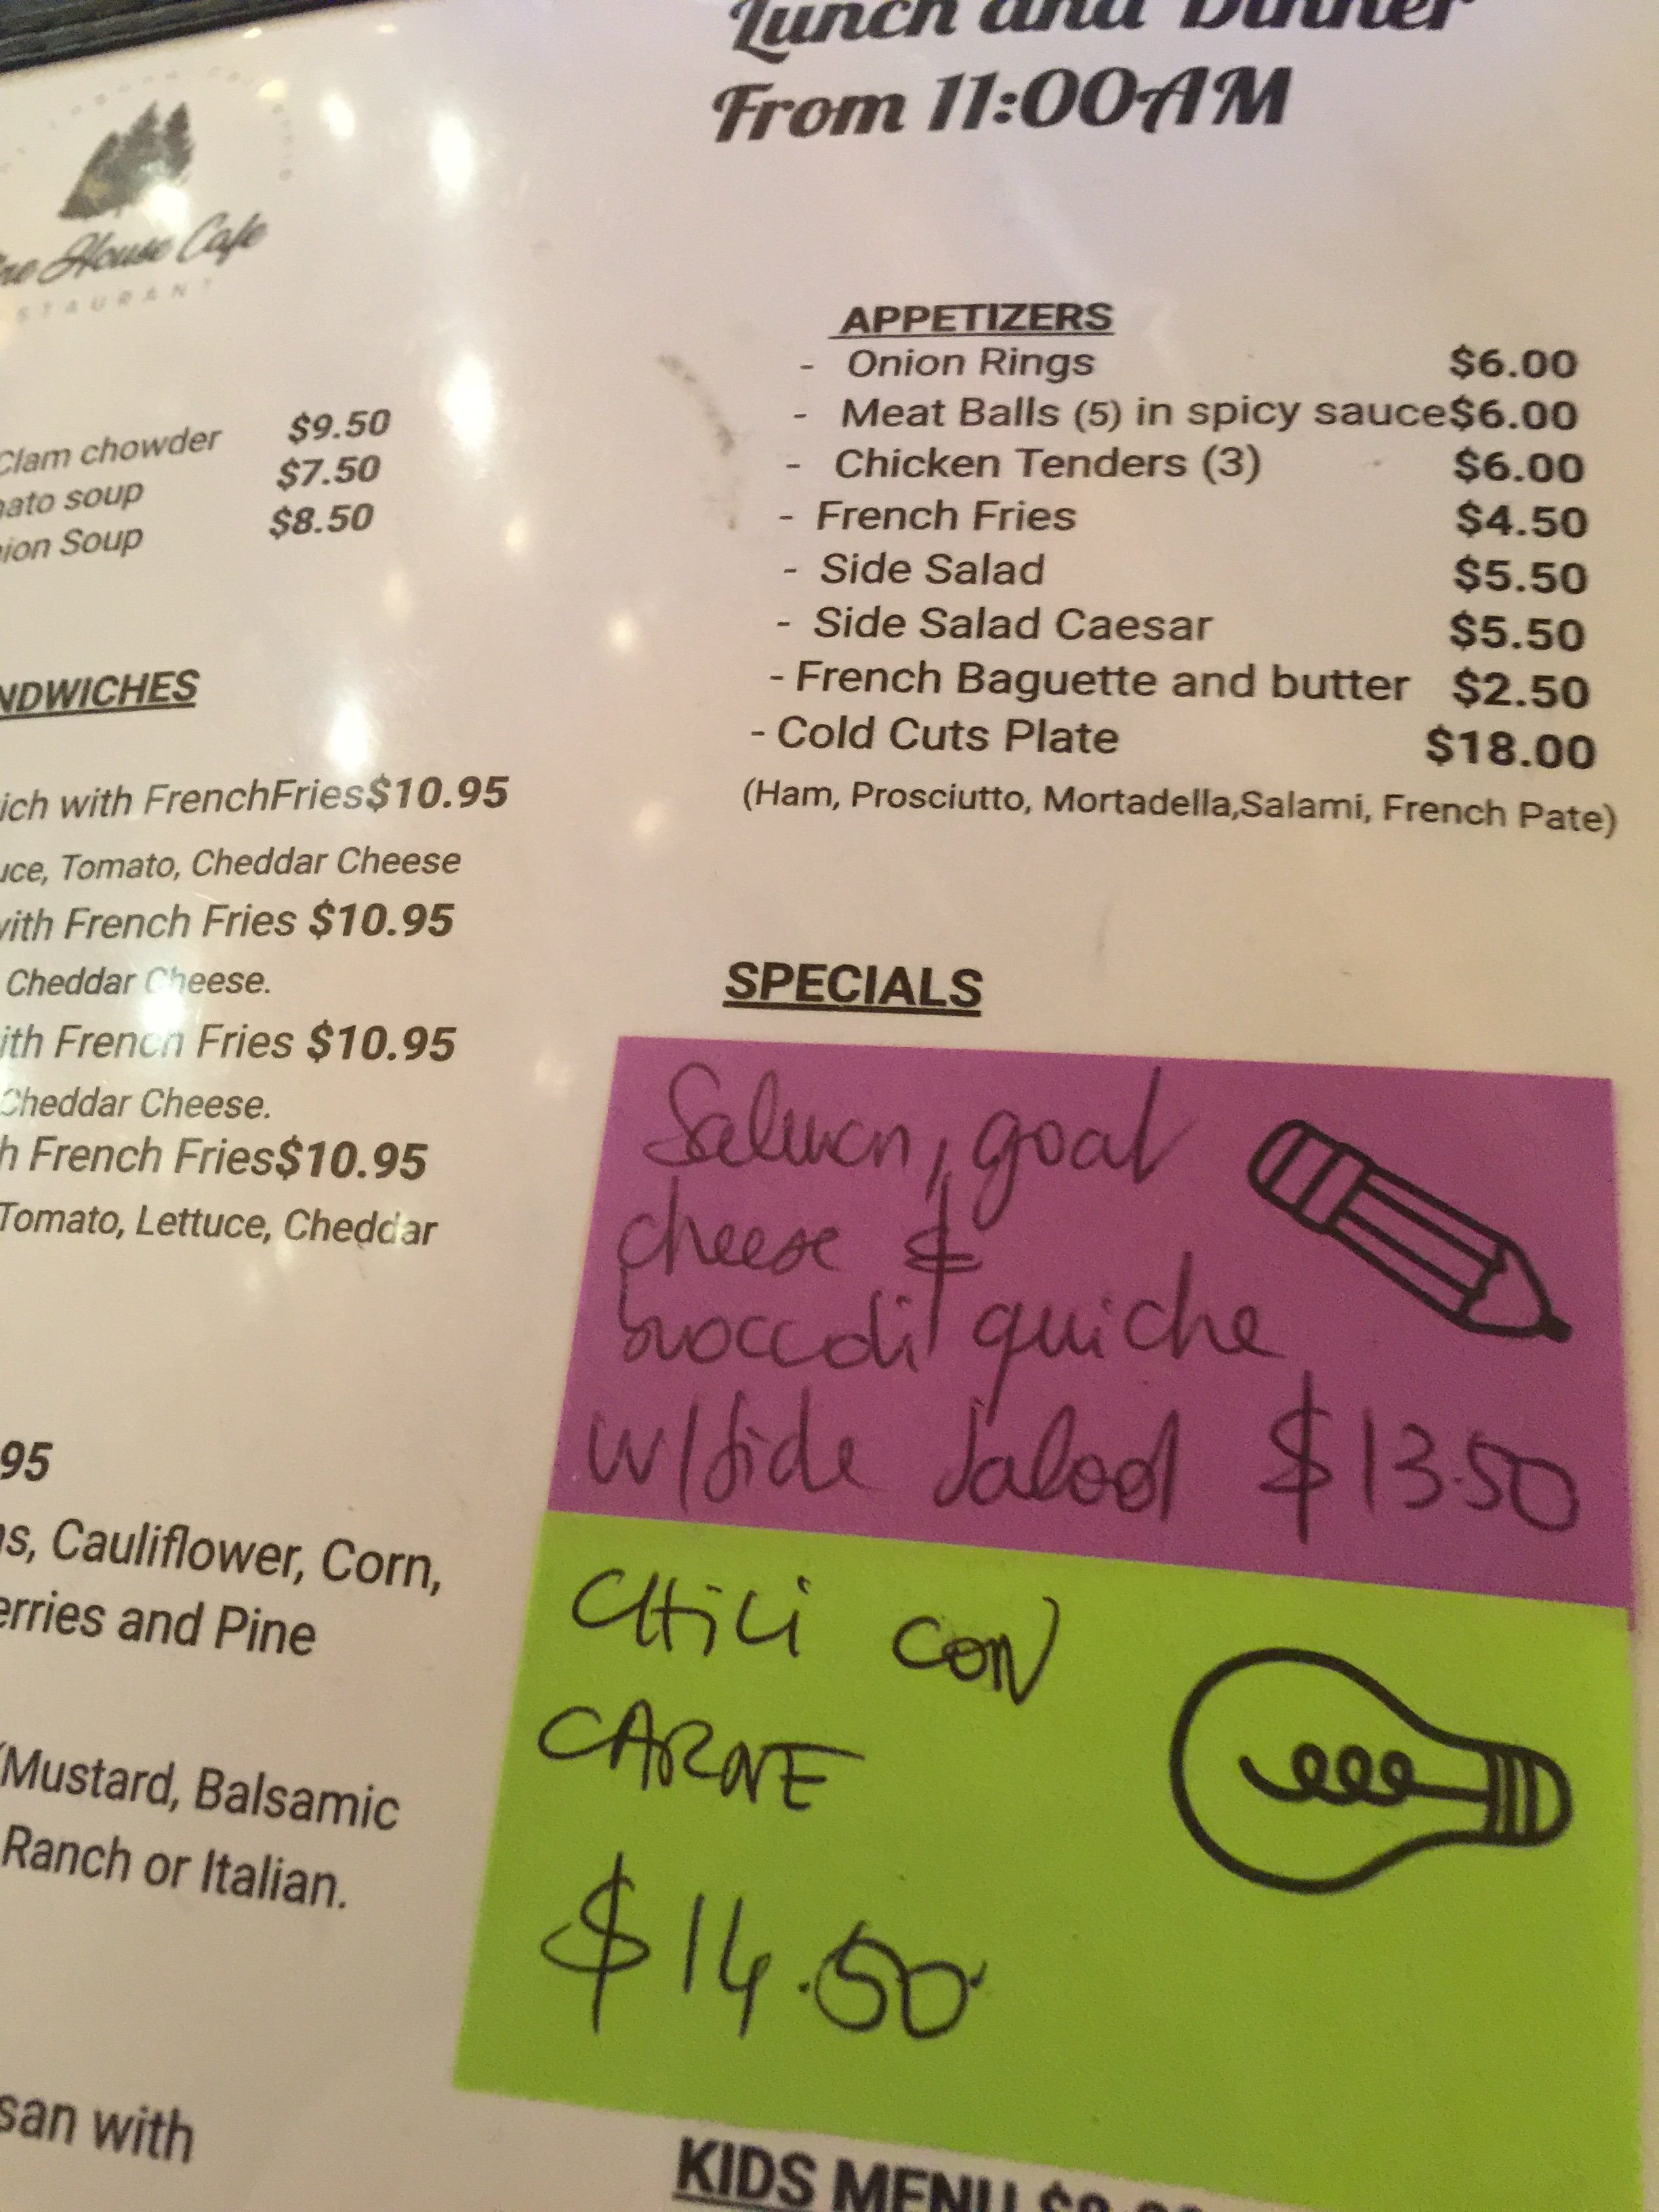 Lunch and Dinner
From 11:00AM
House Cafe
Clam chowder $9.50
soup $7.50
Soup $8.50
APPETIZERS
- Onion Rings $6.00
- Meat Balls (5) in spicy sauce$6.00
- Chicken Tenders (3) $6.00
- French Fries $4.50
- Side Salad $5.50
- Side Salad Caesar $5.50
- French Baguette and butter $2.50
- Cold Cuts Plate $18.00
(Ham, Prosciutto, Mortadella,Salami, French Pate)
with FrenchFries$10.95
Tomato, Cheddar Cheese
with French Fries $10.95
Cheddar Cheese.
French Fries $10.95
Cheddar Cheese.
French Fries$10.95
Tomato, Lettuce, Cheddar
95
Cauliflower, Corn,
and Pine
(Mustard, Balsamic
Ranch or Italian.
with
SPECIALS
Salmon, goat
cheese &
broccoli quiche
w/side salad $13.50
CHiLi CON
CARNE
$14.50
KIDS MENU